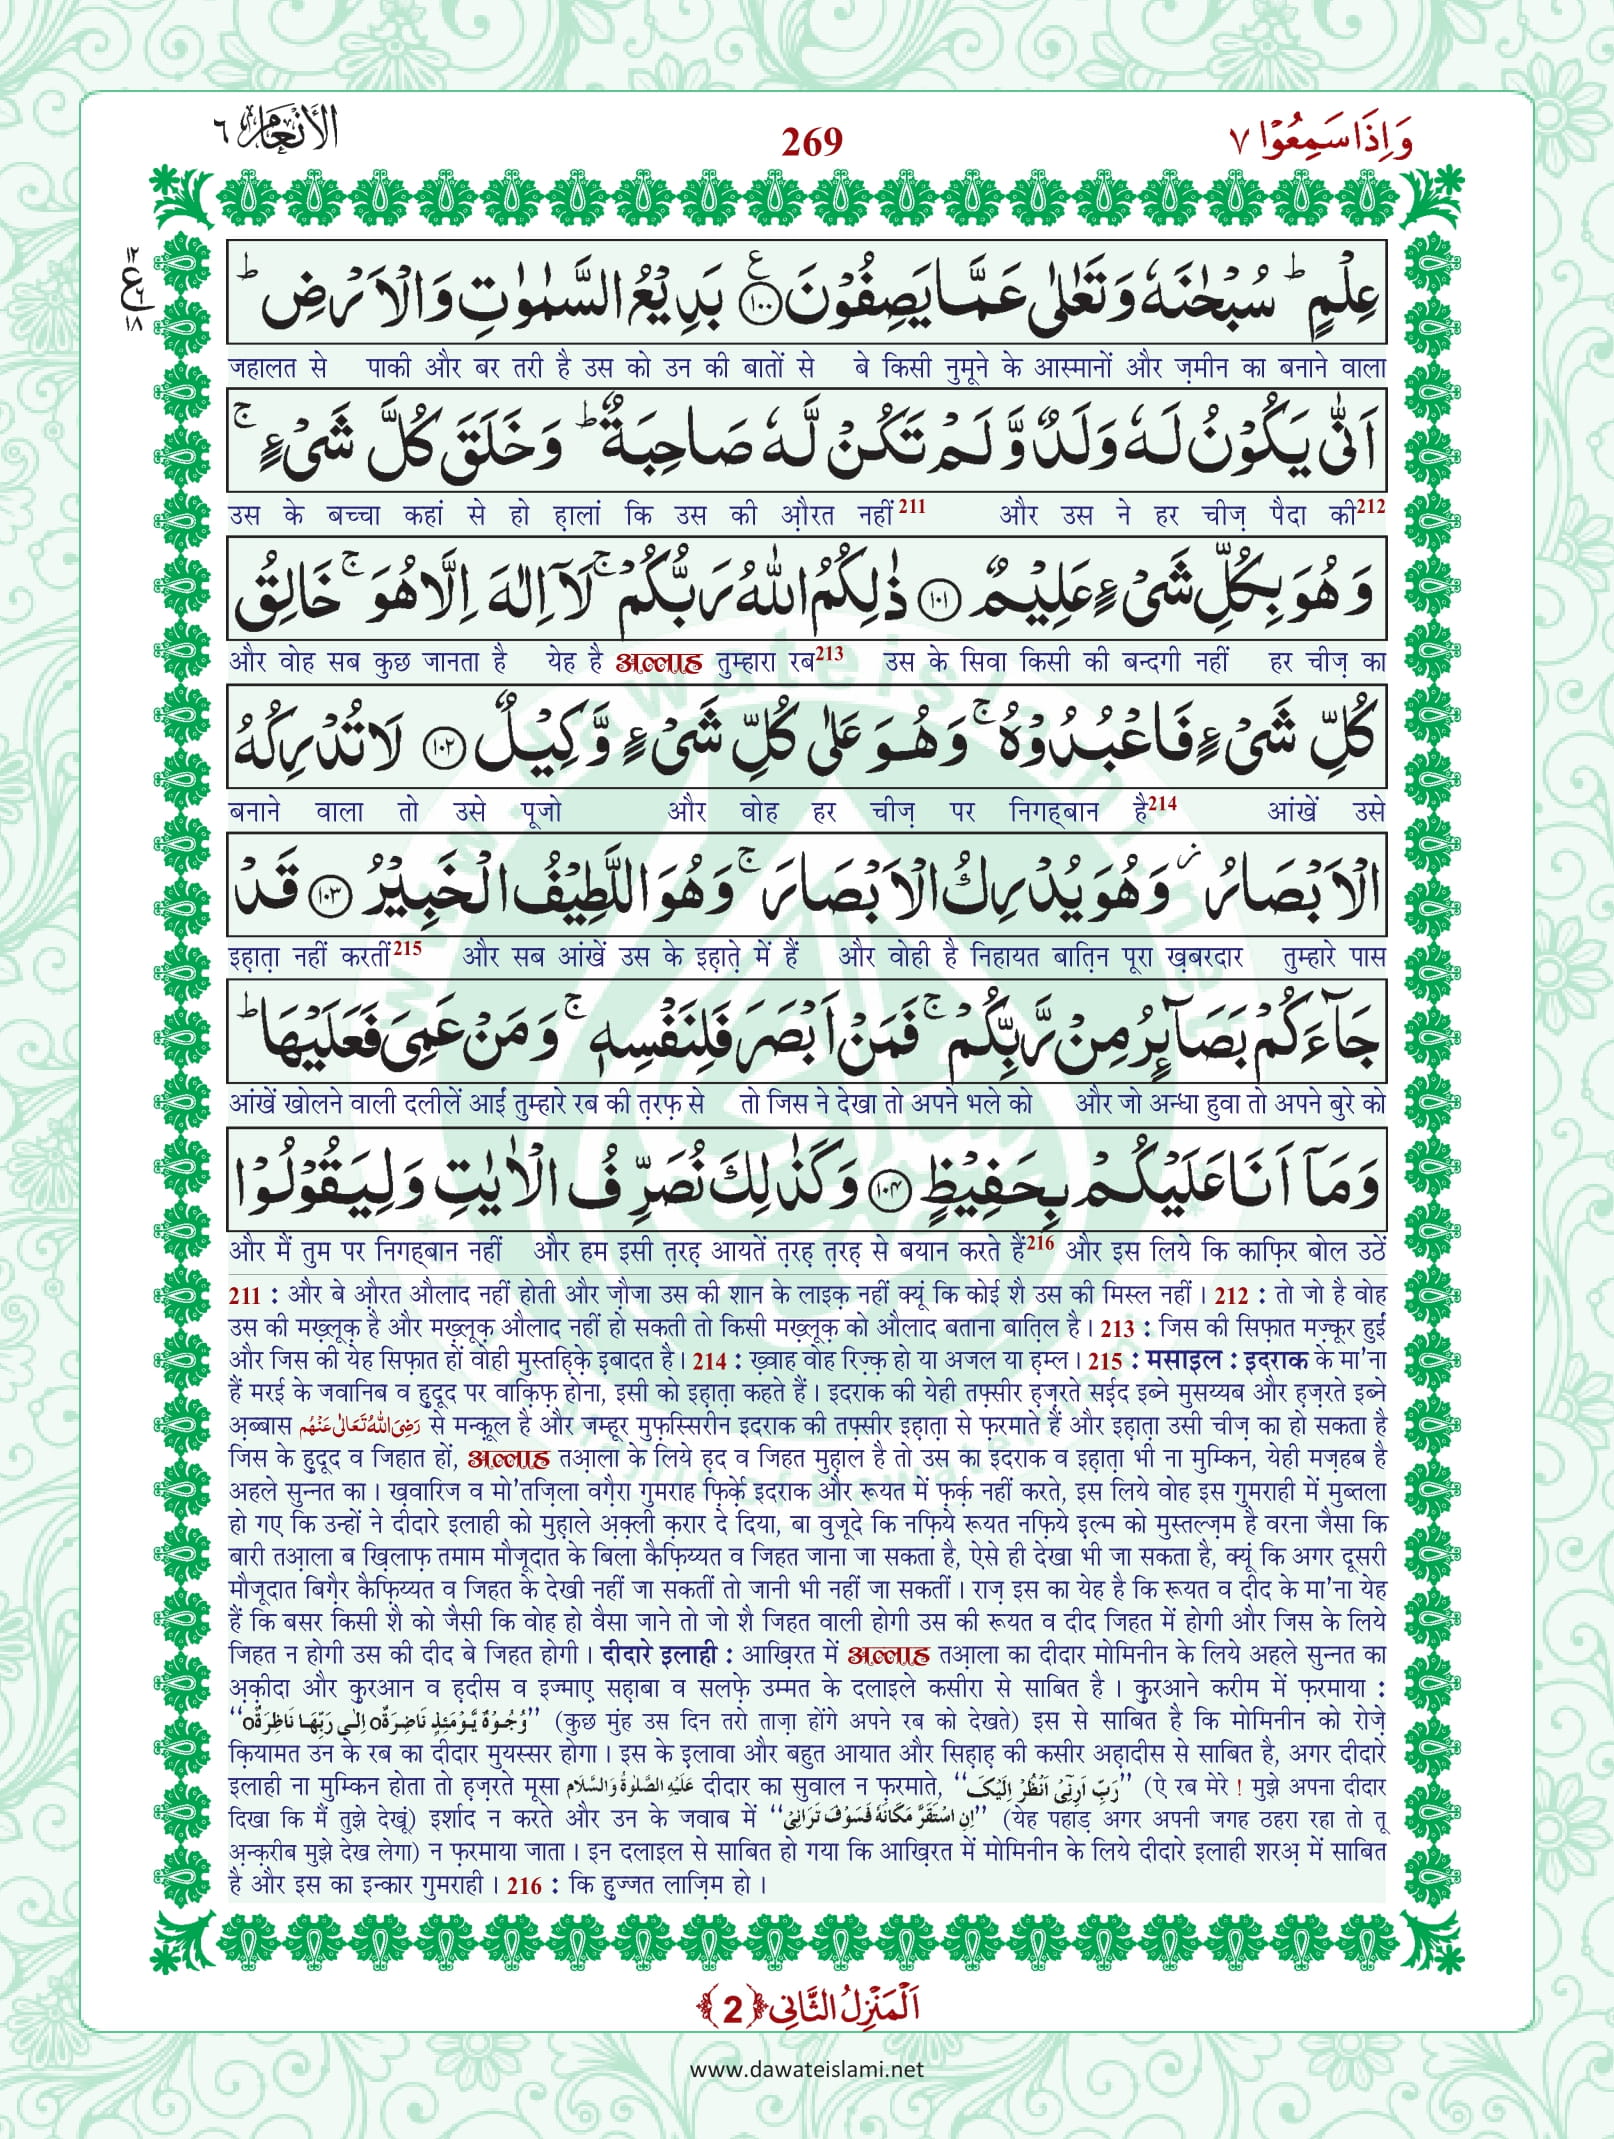 وَاِذَا سَمِعُوْا ٧
269
الْاَنْعَام ٦
عِلْمٍ ؕ سُبْحٰنَهٗ وَ تَعٰلٰى عَمَّا یَصِفُوْنَ ﴿۱۰۰﴾ بَدِیْعُ السَّمٰوٰتِ وَ الْاَرْضِ ؕ
ع ١٢ ٦ ١٨
जहालत से पाकी और बर तरी है उस को उन की बातों से बे किसी नुमूने के आस्मानों और ज़मीन का बनाने वाला
اَنّٰى یَكُوْنُ لَهٗ وَلَدٌ وَّ لَمْ تَكُنْ لَّهٗ صَاحِبَةٌ ؕ وَ خَلَقَ كُلَّ شَیْءٍ ۚ
उस के बच्चा कहां से हो ह़ालां कि उस की औ़रत नहीं211 और उस ने हर चीज़ पैदा की212
وَ هُوَ بِكُلِّ شَیْءٍ عَلِیْمٌ ﴿۱۰۱﴾ ذٰلِكُمُ اللّٰهُ رَبُّكُمْ ۚ لَاۤ اِلٰهَ اِلَّا هُوَ ۚ خَالِقُ
और वोह सब कुछ जानता है येह है अल्लाह तुम्हारा रब213 उस के सिवा किसी की बन्दगी नहीं हर चीज़ का
كُلِّ شَیْءٍ فَاعْبُدُوْهُ ۚ وَ هُوَ عَلٰى كُلِّ شَیْءٍ وَّكِیْلٌ ﴿۱۰۲﴾ لَا تُدْرِكُهُ
बनाने वाला तो उसे पूजो और वोह हर चीज़ पर निगह्बान है214 आंखें उसे
الْاَبْصَارُ ؗ وَ هُوَ یُدْرِكُ الْاَبْصَارَ ۚ وَ هُوَ اللَّطِیْفُ الْخَبِیْرُ ﴿۱۰۳﴾ قَدْ
इह़ात़ा नहीं करतीं215 और सब आंखें उस के इह़ात़े में हैं और वोही है निहायत बात़िन पूरा ख़बरदार तुम्हारे पास
جَآءَكُمْ بَصَآىٕرُ مِنْ رَّبِّكُمْ ۚ فَمَنْ اَبْصَرَ فَلِنَفْسِهٖ ۚ وَ مَنْ عَمِیَ فَعَلَیْهَا ؕ
आंखें खोलने वाली दलीलें आईं तुम्हारे रब की त़रफ़ से तो जिस ने देखा तो अपने भले को और जो अन्धा हुवा तो अपने बुरे को
وَ مَاۤ اَنَا عَلَیْكُمْ بِحَفِیْظٍ ﴿۱۰۴﴾ وَ كَذٰلِكَ نُصَرِّفُ الْاٰیٰتِ وَ لِیَقُوْلُوْا
और मैं तुम पर निगह्बान नहीं और हम इसी त़रह़ आयतें त़रह़ त़रह़ से बयान करते हैं216 और इस लिये कि काफ़िर बोल उठें
211 : और बे औ़रत औलाद नहीं होती और ज़ौजा उस की शान के लाइक़ नहीं क्यूं कि कोई शै उस की मिस्ल नहीं। 212 : तो जो है वोह
उस की मख़्लूक़ है और मख़्लूक़ औलाद नहीं हो सकती तो किसी मख़्लूक़ को औलाद बताना बात़िल है। 213 : जिस की सिफ़ात मज़्कूर हुईं
और जिस की येह सिफ़ात हों वोही मुस्तह़िक़े इबादत है। 214 : ख़्वाह वोह रिज़्क़ हो या अजल या ह़म्ल। 215 : मसाइल : इदराक के मा'ना
हैं मरई के जवानिब व ह़ुदूद पर वाक़िफ़ होना, इसी को इह़ात़ा कहते हैं। इदराक की येही तफ़्सीर ह़ज़रते सई़द इब्ने मुसय्यब और ह़ज़रते इब्ने
अ़ब्बास رَضِیَ اللّٰهُ تَعَالٰی عَنْهُم से मन्क़ूल है और जम्हूर मुफ़स्सिरीन इदराक की तफ़्सीर इह़ात़ा से फ़रमाते हैं और इह़ात़ा उसी चीज़ का हो सकता है
जिस के ह़ुदूद व जिहात हों, अल्लाह तआ़ला के लिये ह़द व जिहत मुह़ाल है तो उस का इदराक व इह़ात़ा भी ना मुम्किन, येही मज़हब है
अहले सुन्नत का। ख़वारिज व मो'तज़िला वग़ैरा गुमराह फ़िर्क़े इदराक और रूयत में फ़र्क़ नहीं करते, इस लिये वोह इस गुमराही में मुब्तला
हो गए कि उन्हों ने दीदारे इलाही को मुह़ाले अ़क़्ली क़रार दे दिया, बा वुजूदे कि नफ़िये रूयत नफ़िये इल्म को मुस्तल्ज़म है वरना जैसा कि
बारी तआ़ला ब ख़िलाफ़ तमाम मौजूदात के बिला कैफ़िय्यत व जिहत जाना जा सकता है, ऐसे ही देखा भी जा सकता है, क्यूं कि अगर दूसरी
मौजूदात बिग़ैर कैफ़िय्यत व जिहत के देखी नहीं जा सकतीं तो जानी भी नहीं जा सकतीं। राज़ इस का येह है कि रूयत व दीद के मा'ना येह
हैं कि बसर किसी शै को जैसी कि वोह हो वैसा जाने तो जो शै जिहत वाली होगी उस की रूयत व दीद जिहत में होगी और जिस के लिये
जिहत न होगी उस की दीद बे जिहत होगी। दीदारे इलाही : आख़िरत में अल्लाह तआ़ला का दीदार मोमिनीन के लिये अहले सुन्नत का
अ़क़ीदा और क़ुरआन व ह़दीस व इज्माए सह़ाबा व सलफ़े उम्मत के दलाइले कसीरा से साबित है। क़ुरआने करीम में फ़रमाया :
‘‘وُجُوْهٌ یَّوْمَئِذٍ نَّاضِرَةٌo اِلٰی رَبِّهَا نَاظِرَةٌo’’ (कुछ मुंह उस दिन तरो ताज़ा होंगे अपने रब को देखते) इस से साबित है कि मोमिनीन को रोज़े
क़ियामत उन के रब का दीदार मुयस्सर होगा। इस के इ़लावा और बहुत आयात और सिह़ाह़ की कसीर अह़ादीस से साबित है, अगर दीदारे
इलाही ना मुम्किन होता तो ह़ज़रते मूसा عَلَیْهِ الصَّلٰوةُ وَالسَّلَام दीदार का सुवाल न फ़रमाते, ‘‘رَبِّ اَرِنِیْٓ اَنْظُرْ اِلَیْکَ’’ (ऐ रब मेरे ! मुझे अपना दीदार
दिखा कि मैं तुझे देखूं) इर्शाद न करते और उन के जवाब में ‘‘اِنِ اسْتَقَرَّ مَکَانَهٗ فَسَوْفَ تَرَانِیْ’’ (येह पहाड़ अगर अपनी जगह ठहरा रहा तो तू
अ़न्क़रीब मुझे देख लेगा) न फ़रमाया जाता। इन दलाइल से साबित हो गया कि आख़िरत में मोमिनीन के लिये दीदारे इलाही शरअ़ में साबित
है और इस का इन्कार गुमराही। 216 : कि ह़ुज्जत लाज़िम हो।
اَلْمَنْزِلُ الثَّانِی ﴿2﴾
www.dawateislami.net